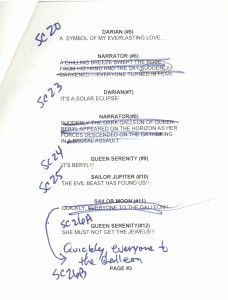 SC20
DARIAN (#5)
A SYMBOL OF MY EVERLASTING LOVE...
NARRATOR (#6)
A CHILLING BREEZE SWEPT THE ROSE
FROM HIS HAND AND THE SKY SUDDENLY
DARKENED... EVERYONE TURNED IN FEAR
SC23
DARIAN(#7)
IT'S A SOLAR ECLIPSE!
NARRATOR(#8)
SUDDENLY THE DARK GALLEON OF QUEEN
BERYL APPEARED ON THE HORIZON AS HER
FORCES DESCENDED ON THE GATHERING
IN A BRUTAL ASSAULT.
SC24
QUEEN SERENITY (#9)
IT'S BERYL!!!
SC25
SAILOR JUPITER (#10)
THE EVIL BEAST HAS FOUND US!!
SAILOR MOON (#11)
QUICKLY, EVERYONE TO THE GALLEON!
SC26A
QUEEN SERENITY(#12)
SHE MUST NOT GET THE JEWELS!!!
Quickly, everyone to
the Galleon
SC26B
PAGE #3